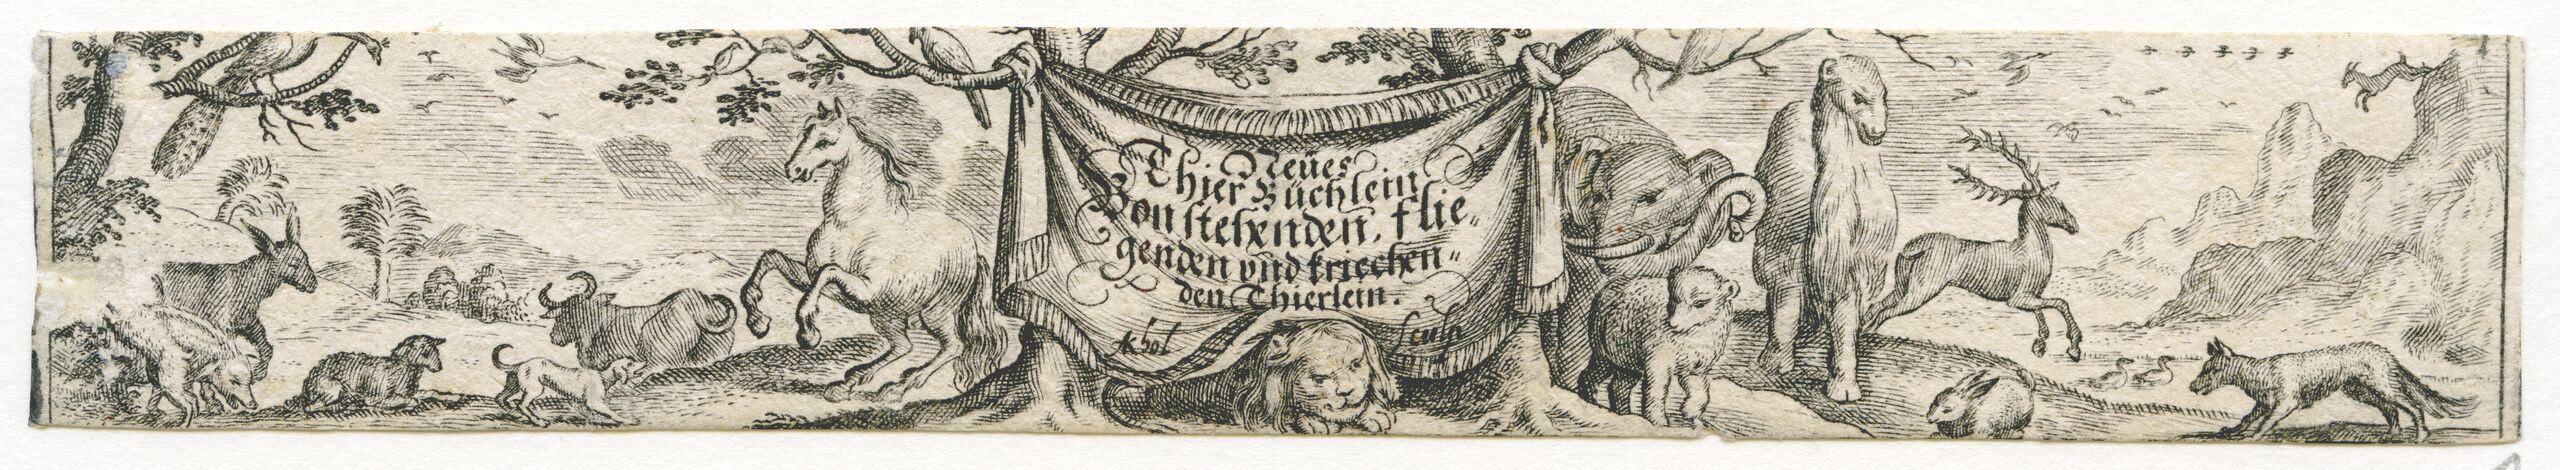 Neües
Thier Büchlein
Von stehenden, flie⸗
genden vnd kriechen⸗
den Thierlein.
sculp